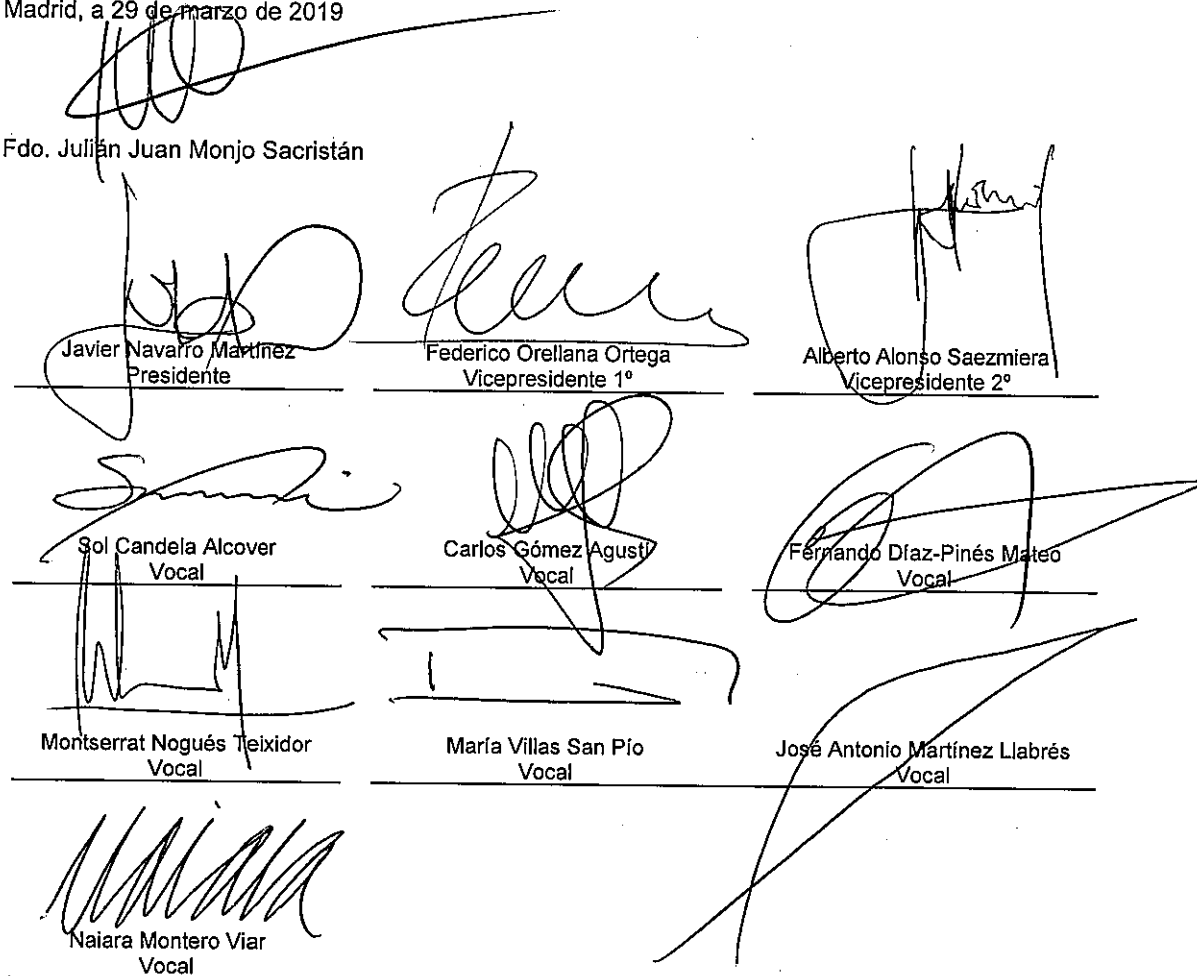 Madrid, a 29 de marzo de 2019
Fdo. Julián Juan Monjo Sacristán
Javier Navarro Martínez
Presidente
Federico Orellana Ortega
Vicepresidente 1º
Alberto Alonso Saezmiera
Vicepresidente 2º
Sol Candela Alcover
Vocal
Carlos Gómez Agustí
Vocal
Fernando Díaz-Pinés Mateo
Vocal
Montserrat Nogués Teixidor
Vocal
María Villas San Pío
Vocal
José Antonio Martínez Llabrés
Vocal
Naiara
Naiara Montero Viar
Vocal